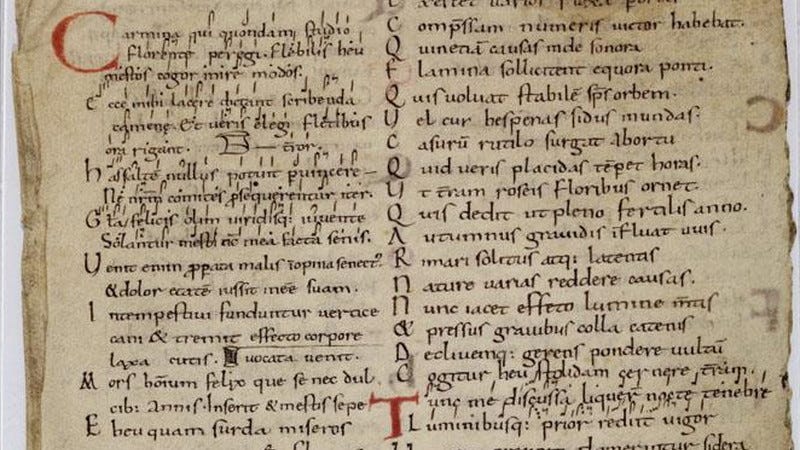 Carmina qui quondam studio
Florente peregi. Flebilis heu
mestos cogor inire modos.
Ecce mihi lacere dictant scribenda
camene. Et ueris elegi fletibus
ora rigant.
has saltē nullus potuit puincere
Ne nrm comites psequerentur iter.
Gla felicis olim uiridisq: iuuente
Solantur mesti nc mea fata senis.
Uenit enim ppata malis īopina senect
&dolor etatē iussit inēē suam.
Intempestiui funduntur uertice
cani & tremit effecto corpore
laxa cutis. uocata uenit.
Mors hōnum felix que se nec dul
cib: Annis. Inserit & mestis sepe
Eheu quam surda miseros
Compssam numeris uictor habebat.
Quinetiā causas unde sonora
Flamina sollicitent equora ponti.
Quis uoluat stabilē sps orbem.
Uel cur hesperias sidus inundas:
Casurū rutilo surgat abortu
Quid ueris placidas tēpet horas.
Ut tram roseis floribus ornet.
Quis dedit ut pleno fertilis anno.
Autumnus grauidis īfluat uuis.
Rimari solitus atq: latentis
Nature uarias reddere causas.
Nunc iacet effeto lumine mtis
& pressus grauibus colla catenis
Decliuemq: gerens pondere uultū
Cogitur heu stolidam cernere tram.
Tunc me discussa liquer nocte tenebre
Luminibusq: prior rediit uigor
sidera